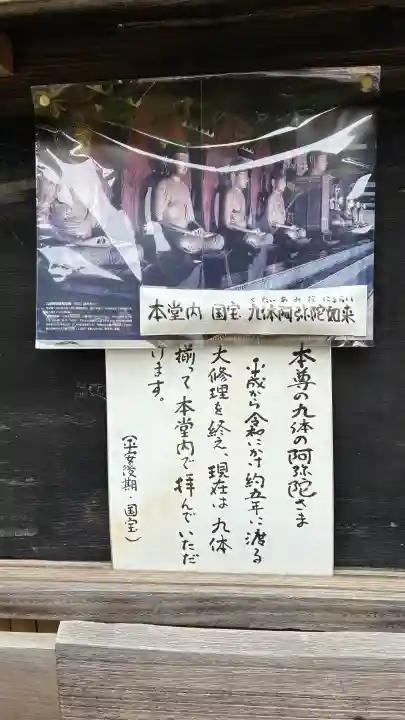 くたいあみだにょらい
本堂内 国宝 九体阿弥陀如来
本尊の九体の阿弥陀さま
平成から令和にかけ約五年に渡る
大修理を終え、現在は九体
揃って本堂内で拝んでいただ
けます。
(平安後期・国宝)